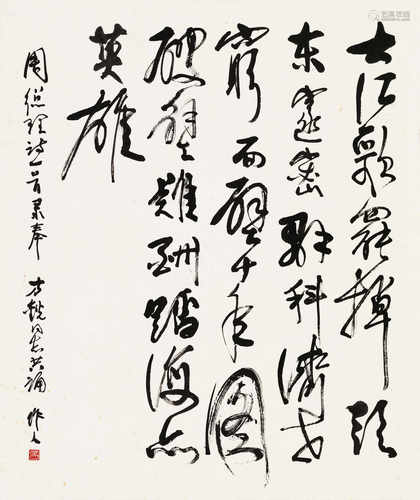 大江歌罷掉頭
东邃密群科濟世
窮面壁十年圖
破壁難酬蹈海亦
英雄
周總理诗一首录奉
方 同志共诵 作人